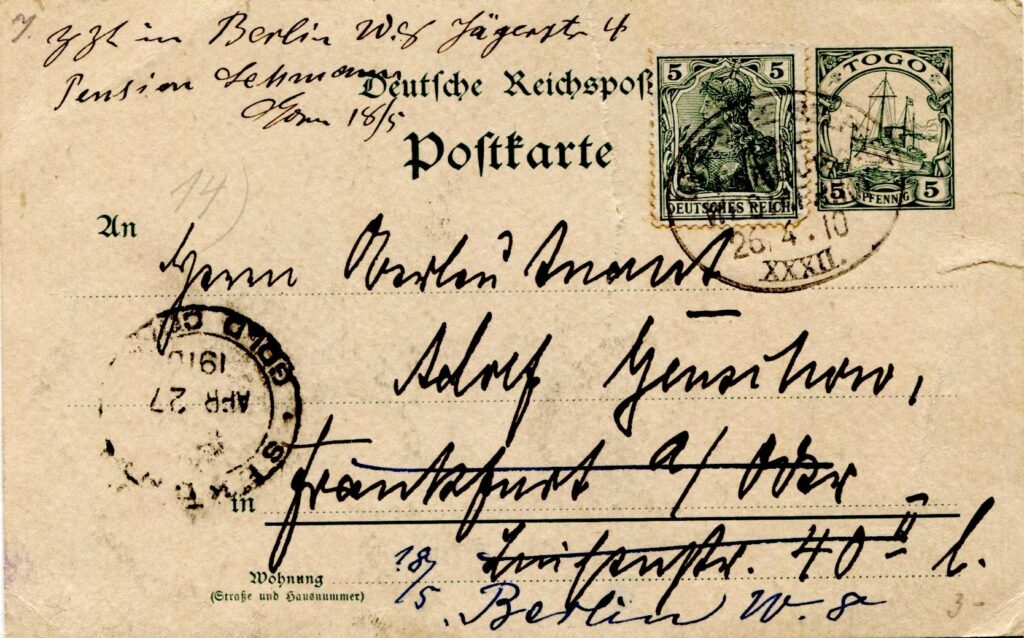 zzt in Berlin W.8 Jägerstr 4
Pension Lehmann
18/5
Deutsche Reichspost
Postkarte
5 5
DEUTSCHES REICH
TOGO
5 PFENNIG 5
26.4.10
XXXII.
14)
An
Herrn Oberleutnant
Adolf Genschow,
in Frankfurt a/Oder
Luisenstr. 40 II l.
Wohnung
(Straße und Hausnummer)
18/5
Berlin W. 8
GOLD
1910
APR 27
3-